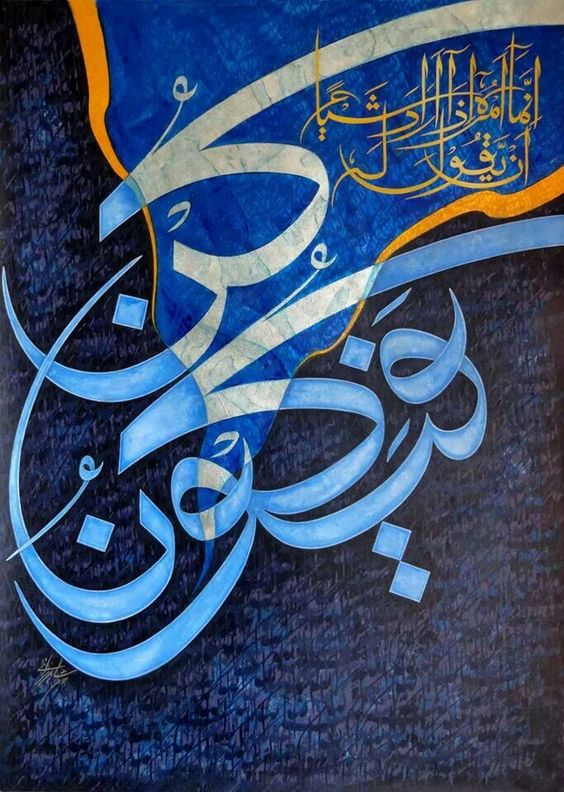 إِنَّمَا أَمْرُهُ إِذَا أَرَادَ شَيْئًا
أَنْ يَقُولَ لَهُ
كُنْ
فَيَكُونُ